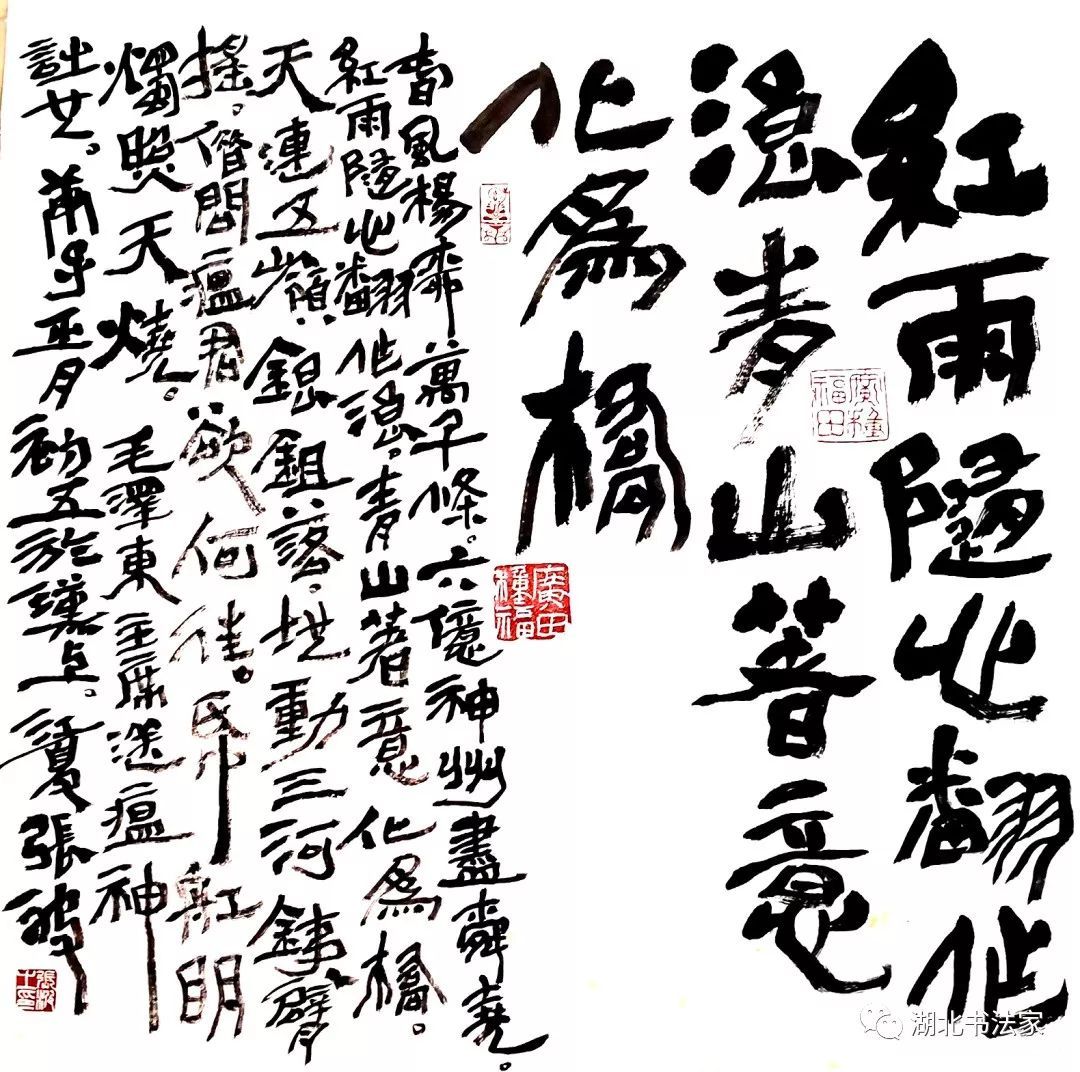 紅雨隨心翻作
浪青山著意
化爲橋
春風楊柳萬千條。六億神州盡舜堯。
紅雨隨心翻作浪。青山著意化爲橋。
天連五嶺銀鋤落。地動三河鐵臂
搖。借問瘟君欲何往。帋船明
燭照天燒。毛澤東主席送瘟神
詩。庚子正月初五於漢上。張
廣種福田
廣種福田
湖北书法家